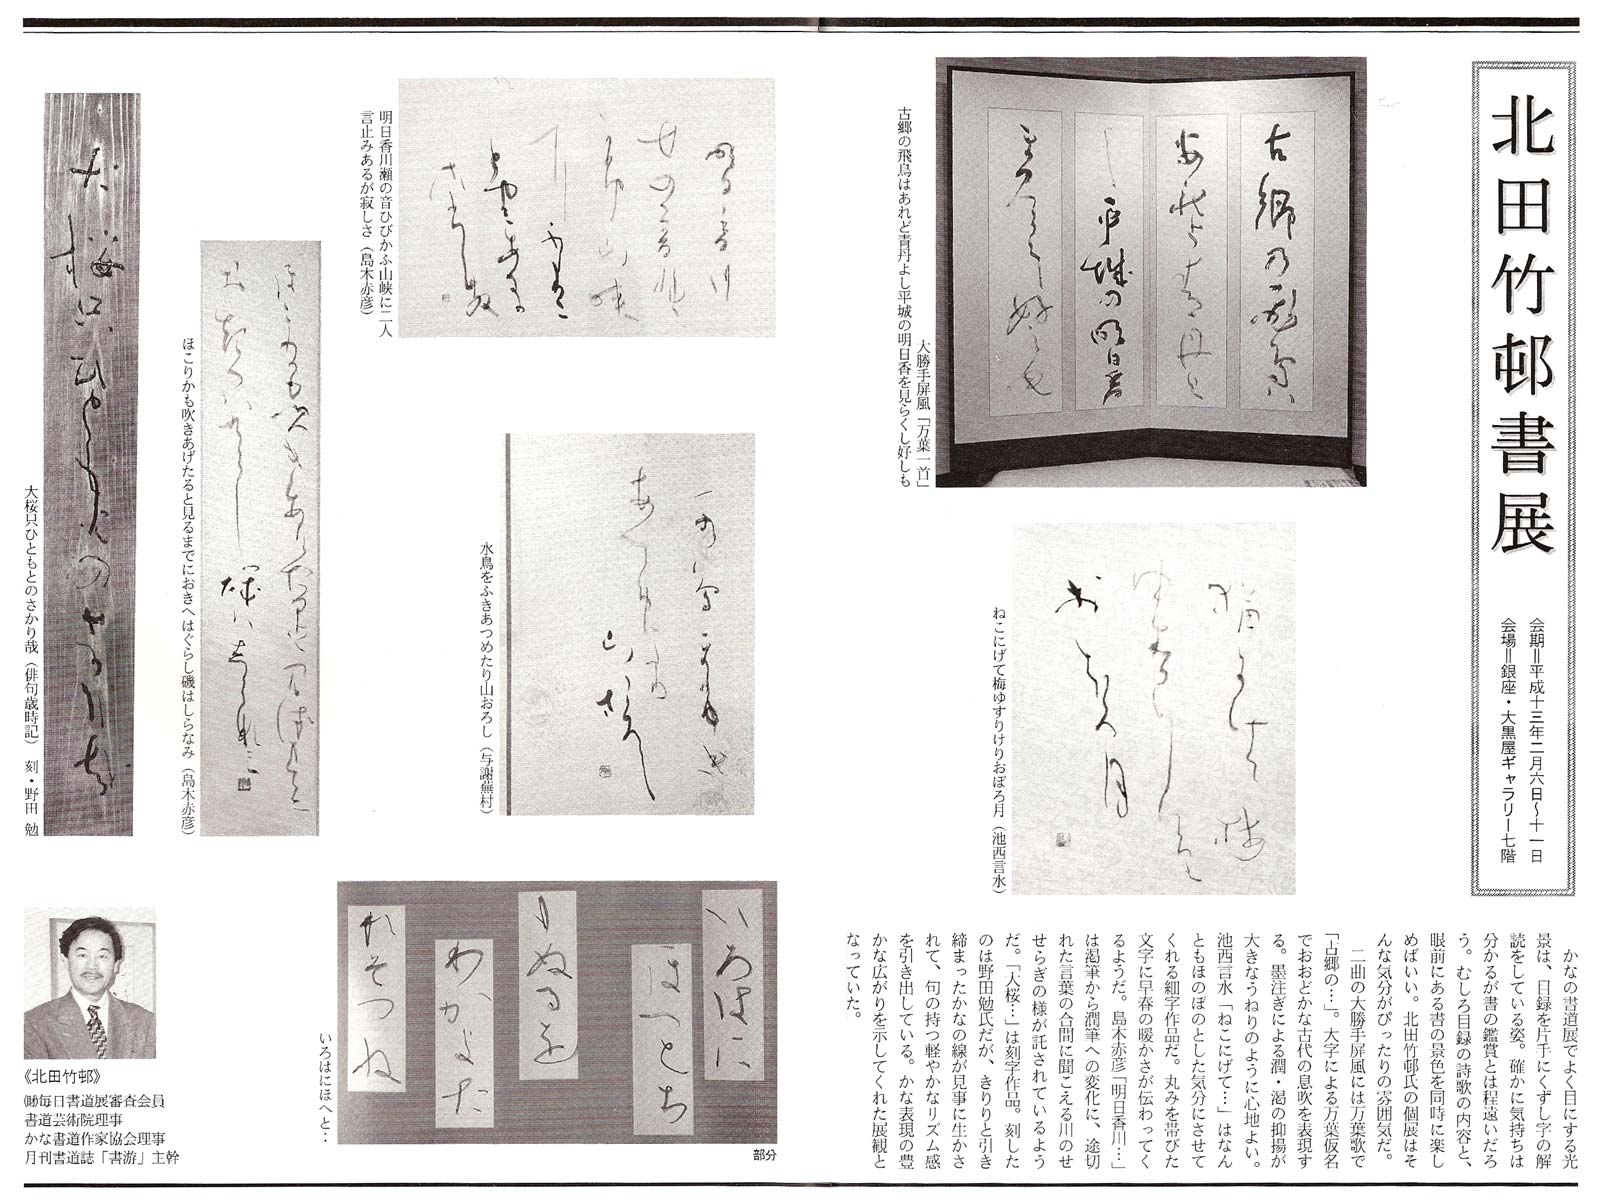 北田竹邨書展
会期＝平成十三年二月六日〜十一日
会場＝銀座・大黒屋ギャラリー七階
大勝手屏風「万葉一首」
古郷の飛鳥はあれど青丹よし平城の明日香を見らくし好しも
ねこにげて梅ゆすりけりおぼろ月（池西言水）
かなの書道展でよく目にする光
景は、目録を片手にくずし字の解
読をしている姿。確かに気持ちは
分かるが書の鑑賞とは程遠いだろ
う。むしろ目録の詩歌の内容と、
眼前にある書の景色を同時に楽し
めばいい。北田竹邨氏の個展はそ
んな気分がぴったりの雰囲気だ。
二曲の大勝手屏風には万葉歌で
「古郷の…」。大字による万葉仮名
でおおどかな古代の息吹を表現す
る。墨注ぎによる潤・渇の抑揚が
大きなうねりのように心地よい。
池西言水「ねこにげて…」はなん
ともほのぼのとした気分にさせて
くれる細字作品だ。丸みを帯びた
文字に早春の暖かさが伝わってく
るようだ。島木赤彦「明日香川…」
は渇筆から潤筆への変化に、途切
れた言葉の合間に聞こえる川のせ
せらぎの様が託されているよう
だ。「大桜…」は刻字作品。刻した
のは野田勉氏だが、きりりと引き
締まったかなの線が見事に生かさ
れて、句の持つ軽やかなリズム感
を引き出している。かな表現の豊
かな広がりを示してくれた展観と
なっていた。
明日香川瀬の音ひびかふ山峡に二人
言止みあるが寂しさ（島木赤彦）
水鳥をふきあつめたり山おろし（与謝蕪村）
ほこりかも吹きあげたると見るまでにおきへはぐらし磯はしらなみ（島木赤彦）
大桜只ひともとのさかり哉（俳句歳時記）　刻・野田 勉
いろはにほへと…
いろはに
ほへとち
りぬるを
わかよた
れそつね
部分
《北田竹邨》
㈶毎日書道展審査会員
書道芸術院理事
かな書道作家協会理事
月刊書道誌「書游」主幹